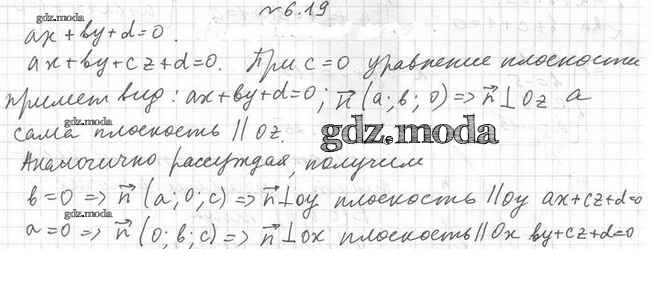 №6.19
gdz.moda
ax + by + d = 0.
ax + by + cz + d = 0. При c = 0 уравнение плоскости
gdz.moda
примет вид: ax + by + d = 0; n⃗ (a; b; 0) => n⃗ ⊥ Oz а
сама плоскость || Oz.
gdz.moda
Аналогично рассуждая, получим
b = 0 => n⃗ (a; 0; c) => n⃗ ⊥ oy плоскость || oy ax + cz + d = 0
gdz.moda
a = 0 => n⃗ (0; b; c) => n⃗ ⊥ ox плоскость || Ox by + cz + d = 0